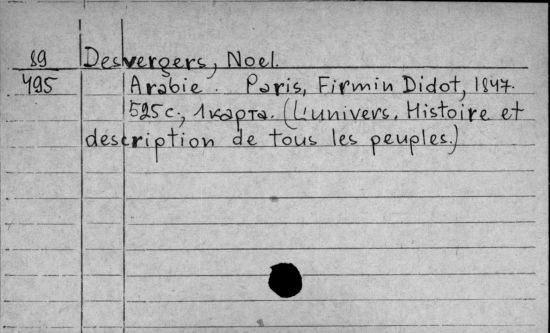 89 Desvergers, Noel.
495 Arabie. Paris, Firmin Didot, 1847.
525 с., 1 карта. (L'univers. Histoire et
description de tous les peuples.)